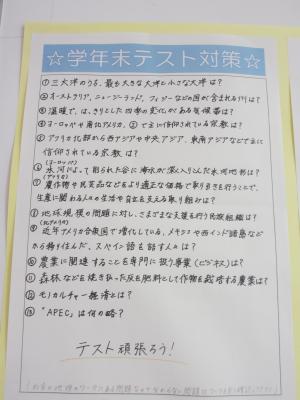 ☆学年末テスト対策☆
① 三大洋のうち、最も大きな大洋と小さな大洋は？
② オーストラリア、ニュージーランド、フィジーなどの国が含まれる州は？
③ 温暖で、はっきりとした四季の変化がある気候帯は？
④ ヨーロッパや南北アメリカ、で主に信仰されている宗教は？
⑤ アフリカ北部から西アジアや中央アジア、東南アジアなどで主に
信仰されている宗教は？
(ヨーロッパ)
⑥ 氷河によって削られた谷に海水が深く入りこんだ氷河地形は？
(アフリカ)
⑦ 農作物や民芸品などをより適正な価格で取り引きを行うことで、
生産に関わる人々の生活や自立を支える取り組みは？
⑧ 地球規模の問題に対し、さまざまな支援を行う民族組織は？
(北アメリカ)
⑨ 近年アメリカ合衆国で増化している、メキシコや西インド諸島など
から移り住んだ、スペイン語を話す人々は？
⑩ 農業に関連することを専門に扱う事業(ビジネス)は？
⑪ 森林などを焼き払った灰を肥料として作物を栽培する農業は？
⑫ モノカルチャー経済とは？
⑬ "APEC"は何の略？
テスト頑張ろう！